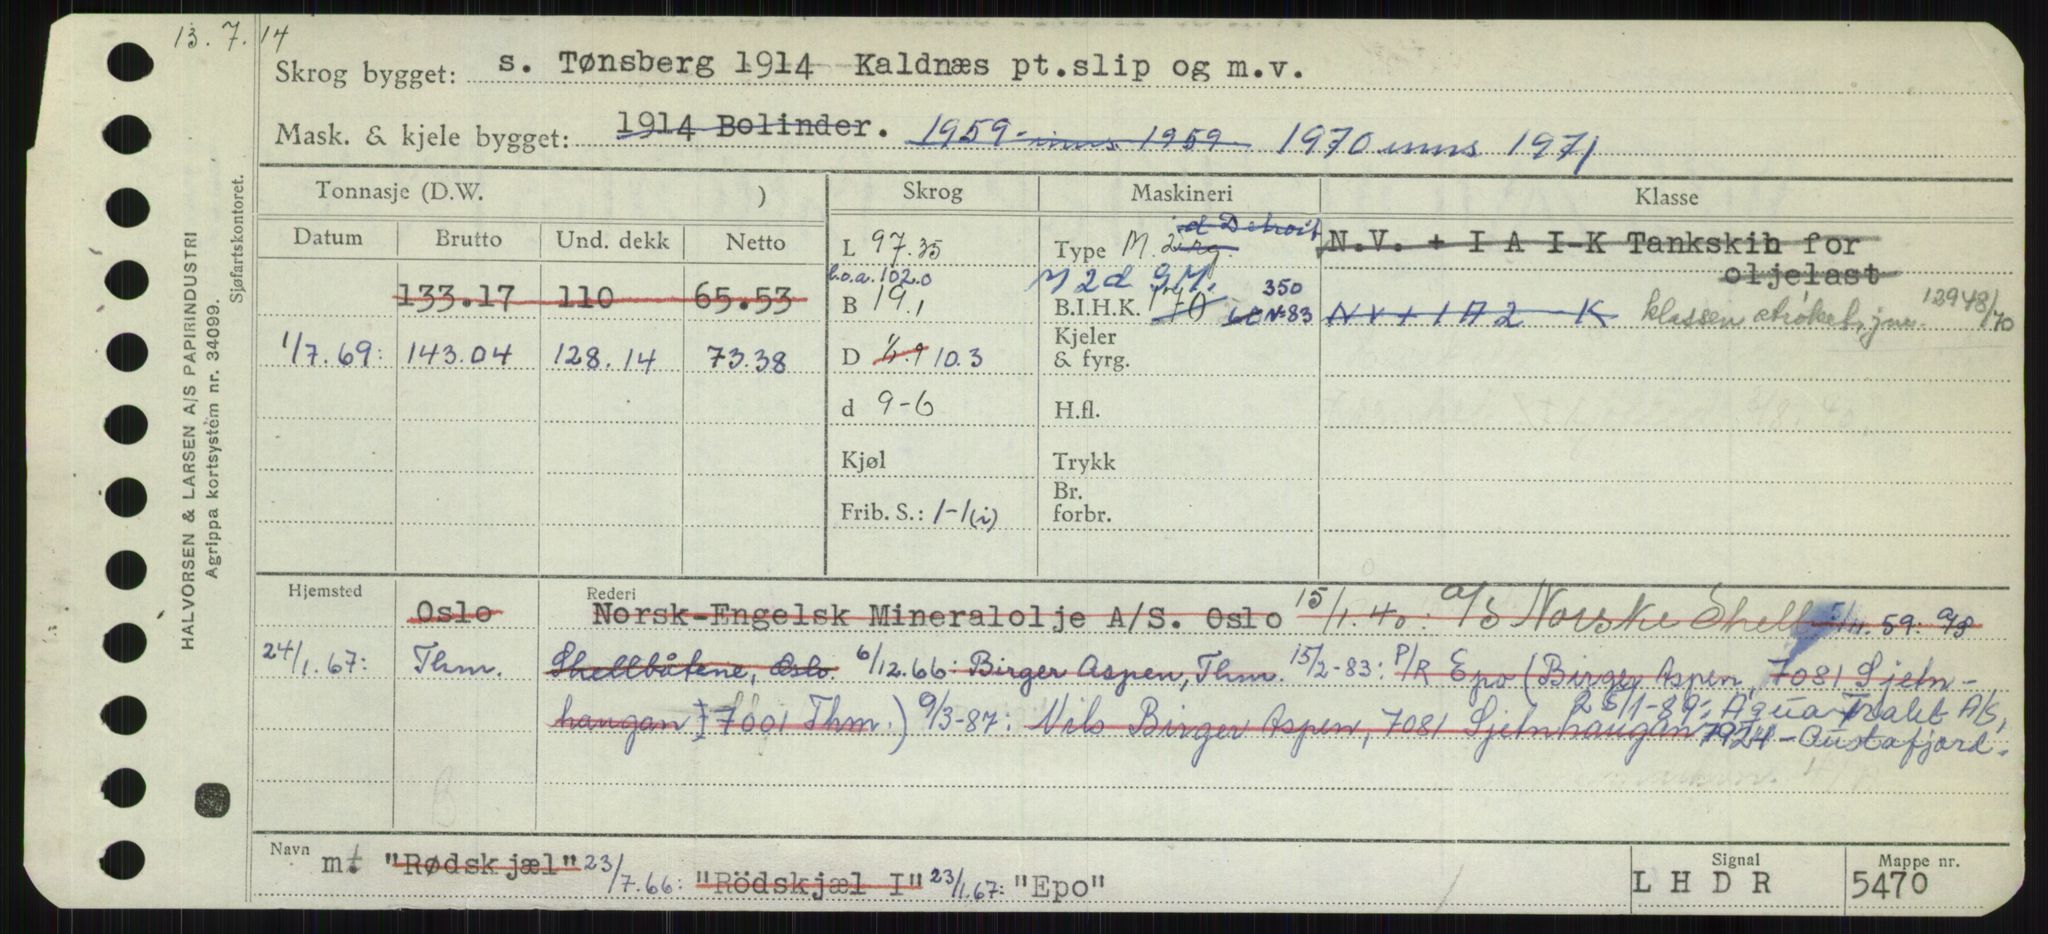 13.7.14
Skrog bygget: s. Tønsberg 1914 Kaldnæs pt.slip og m.v.
Mask. & kjele bygget: 1914 Bolinder. 1959 inns 1959 1970 inns 1971
Tonnasje (D.W. ) Skrog Maskineri Klasse
Datum Brutto Und. dekk Netto
L 97.35
Type M. 2
d Detroit
N.V. + I A I-K Tankskih for
oljelast
l.o.a. 102.0
M 2d G.M.
133.17 110 65.53
B 19,1
B.I.H.K. 170 350
NV + 1A2 - K klassen strøket, jnr. 12948/70
1/7.69: 143.04 128.14 73.38
D 10.3
Kjeler
& fyrg.
d 9-6
H.fl.
Kjøl
Trykk
Frib. S.: 1-1(i)
Br.
forbr.
Hjemsted
Rederi
Oslo Norsk-Engelsk Mineralolje A/S. Oslo 15/1.40: a/s Norske Shell 5/11.59: A/S
24/1.67: Thm. Shellbåtene, Oslo. 6/12.66: Birger Aspen, Thm. 15/2-83: P/R Epo (Birger Aspen, 7081 Sjetn-
haugan 7001 Thm.) 9/3-87: Nils Birger Aspen, 7081 Sjetnhaugan 25/1-89: Aqua Trakt A/S,
7924 - Austafjord.
Navn m "Rødskjæl" 23/7.66: "Rödskjæl I" 23/1.67: "Epo"
Signal
L H D R
Mappe nr.
5470
HALVORSEN & LARSEN A/S PAPIRINDUSTRI
Agrippa kortsystem nr. 34099.
Sjøfartskontoret.